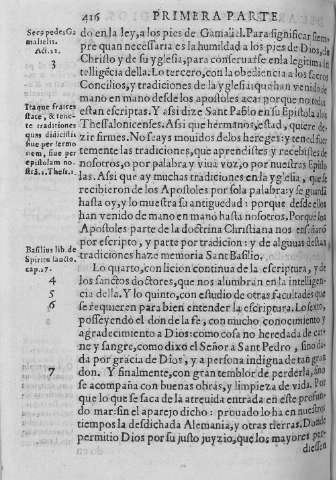 416 PRIMERA PARTE
Secus pedes Ga
malielis.
Act. 22.
3
Itaque fratres
state, & tene-
te traditiones
quas didicistis
siue per sermo
nem, siue per
epistolam no-
strã. 2. Thess. 2.
Basilius lib. de
Spiritu sancto.
cap. 27.
4
5
6
7
do en la ley, a los pies de Gamaliel. Para significar siem-
pre quan necessaria es la humildad a los pies de Dios, de
Christo y de su yglesia, para conseruarse en la legitima in
telligẽcia della. Lo tercero, con la obediencia a los sacros
Concilios, y tradiciones de la yglesia: que han venido de
mano en mano desde los apostoles aca: porque no todas
estan escriptas. Y assi dize Sant Pablo en su Epistola a los
Thessalonicenses. Assi que hermanos, estad, quiere de-
zir firmes. No seays mouidos de los hereges: y tened fuer
temente las tradiciones, que aprendistes y recebistes de
nosotros, o por palabra y viua voz, o por nuestras Episto
las. Assi que ay muchas tradiciones en la yglesia, que se
recibieron de los Apostoles por sola palabra: y se guardã
hasta oy, y lo muestra su antiguedad: porque desde ellos
han venido de mano en mano hasta nosotros. Porque los
Apostoles parte de la doctrina Christiana nos enseñarõ
por escripto, y parte por tradicion: y de algunas destas
tradiciones haze memoria Sant Basilio.
Lo quarto, con licion continua de la escriptura, y de
los sanctos doctores, que nos alumbran en la intelligen-
cia della. Y lo quinto, con estudio de otras facultades que
se requieren para bien entender la escriptura. Lo sexto,
posseyendo el don de la fe, con mucho conocimiento y
agradecimiento a Dios: como cosa no heredada de car-
ne y sangre, como dixo el Señor a Sant Pedro, sino da-
da por gracia de Dios, y a persona indigna de tan gran
don. Y finalmente, con gran temblor de perderla, sino
se acompaña con buenas obras, y limpieza de vida. Por
que lo que se saca de la atreuida entrada en este profun-
do mar sin el aparejo dicho: prouado lo ha en nuestros
tiempos la desdichada Alemania, y otras tierras. Donde
permitio Dios por su justo juyzio, que los mayores per-
diessen